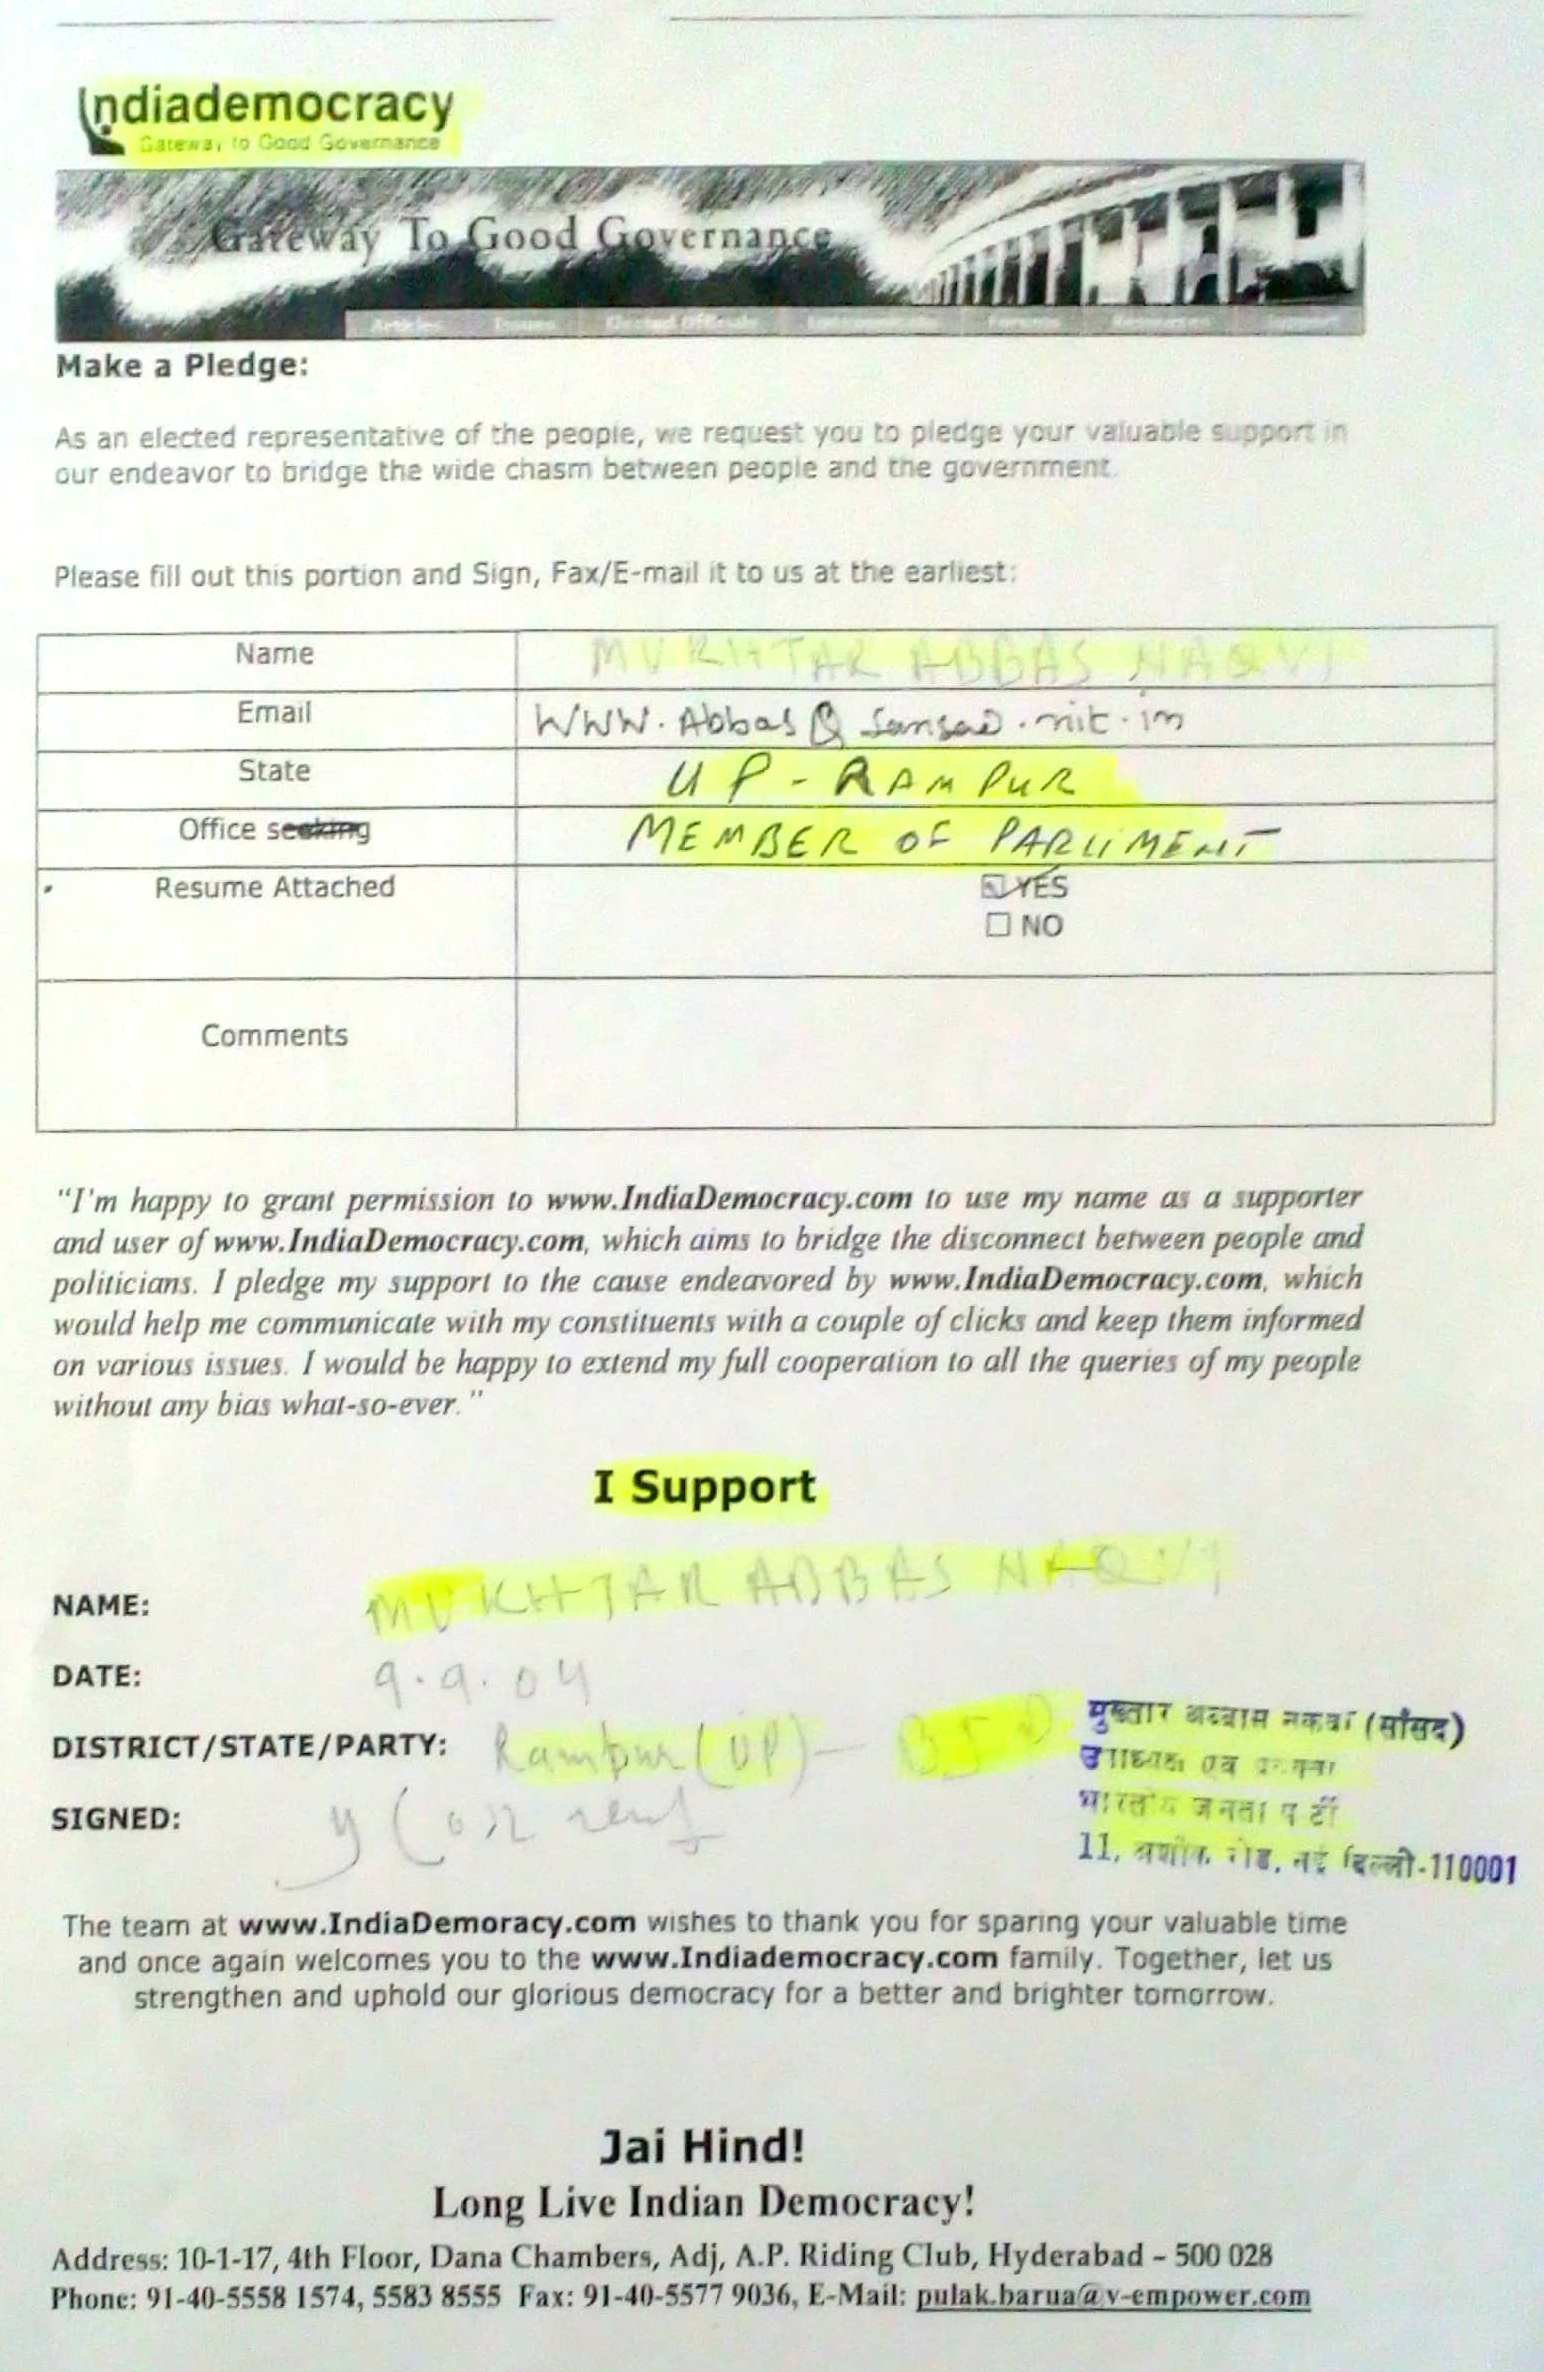 Indiademocracy
Gateway to Good Governance
Gateway To Good Governance
Make a Pledge:
As an elected representative of the people, we request you to pledge your valuable support in
our endeavor to bridge the wide chasm between people and the government.
Please fill out this portion and Sign, Fax/E-mail it to us at the earliest:
Name MUKHTAR ABBAS NAQVI
Email WWW.Abbas@sansad.nic.in
State UP-RAMPUR
Office seeking MEMBER OF PARLIMENT
Resume Attached YES
NO
Comments
"I'm happy to grant permission to www.IndiaDemocracy.com to use my name as a supporter
and user of www.IndiaDemocracy.com, which aims to bridge the disconnect between people and
politicians. I pledge my support to the cause endeavored by www.IndiaDemocracy.com, which
would help me communicate with my constituents with a couple of clicks and keep them informed
on various issues. I would be happy to extend my full cooperation to all the queries of my people
without any bias what-so-ever."
I Support
NAME: MUKHTAR ABBAS NAQVI
DATE: 9.9.04
DISTRICT/STATE/PARTY: Rampur (UP) - BJP
SIGNED:
मुख्तार अब्बास नकवी (सांसद)
उपाध्यक्ष एवं प्रवक्ता
भारतीय जनता पार्टी
11, अशोक रोड, नई दिल्ली-110001
The team at www.IndiaDemoracy.com wishes to thank you for sparing your valuable time
and once again welcomes you to the www.Indiademocracy.com family. Together, let us
strengthen and uphold our glorious democracy for a better and brighter tomorrow.
Jai Hind!
Long Live Indian Democracy!
Address: 10-1-17, 4th Floor, Dana Chambers, Adj, A.P. Riding Club, Hyderabad - 500 028
Phone: 91-40-5558 1574, 5583 8555 Fax: 91-40-5577 9036, E-Mail: pulak.barua@v-empower.com